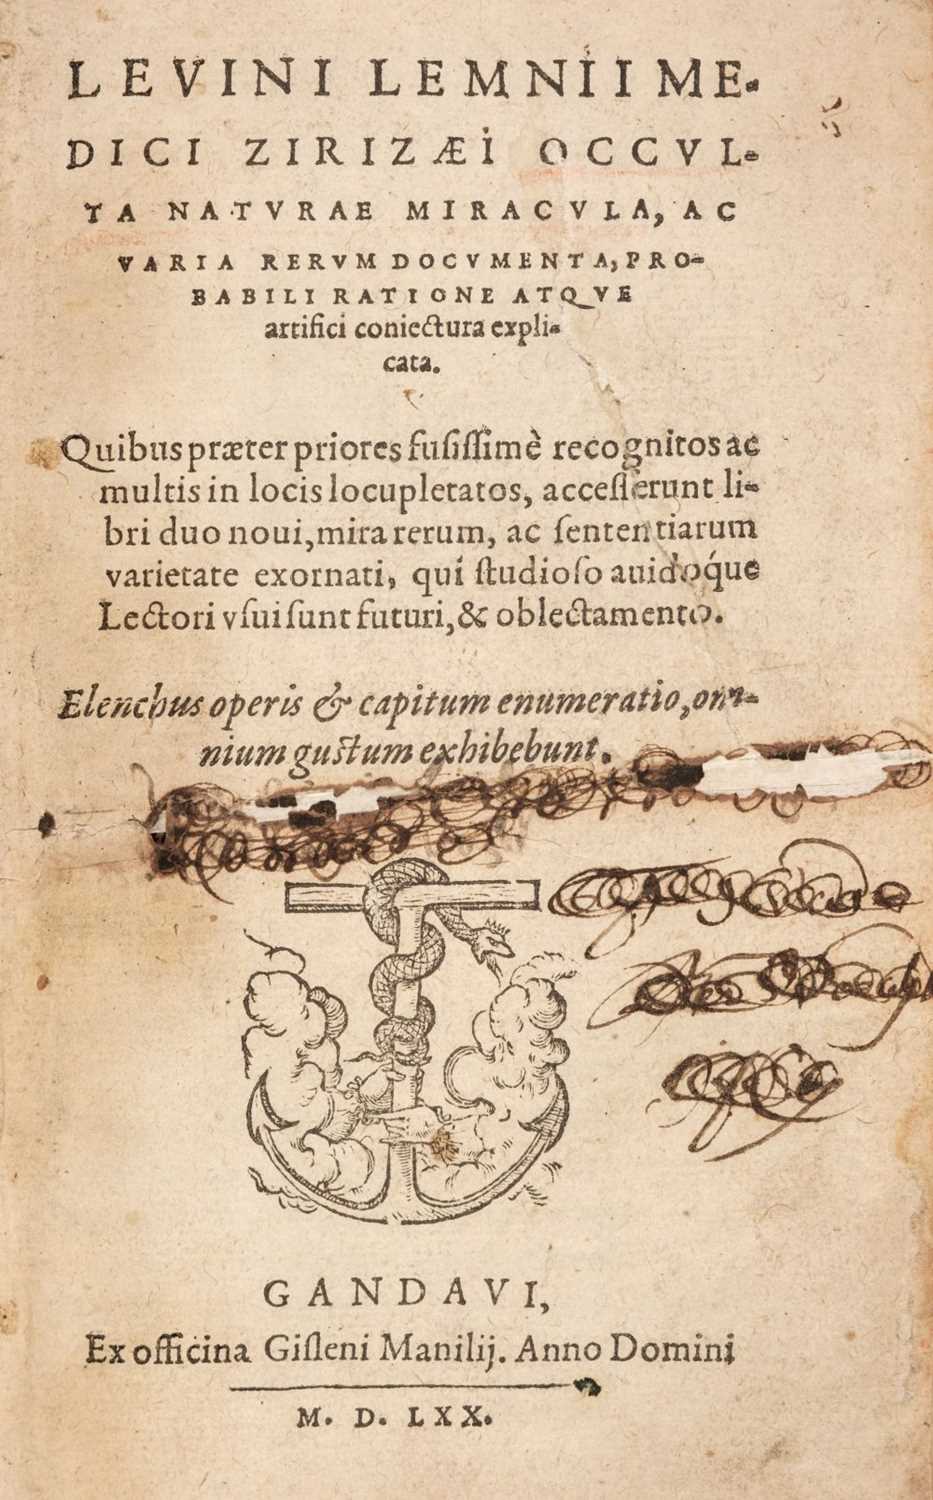 LEVINI LEMNII ME-
DICI ZIRIZÆI OCCVL-
TA NATVRAE MIRACVLA, AC
VARIA RERVM DOCVMENTA, PRO-
BABILI RATIONE ATQVE
artifici coniectura expli-
cata.
Quibus præter priores fusissimè recognitos ac
multis in locis locupletatos, accesserunt li-
bri duo noui, mira rerum, ac sententiarum
varietate exornati, qui studioso auidóque
Lectori vsui sunt futuri, & oblectamento.
Elenchus operis & capitum enumeratio, om-
nium gustum exhibebunt.
GANDAVI,
Ex officina Gisleni Manilij. Anno Domini
M. D. LXX.